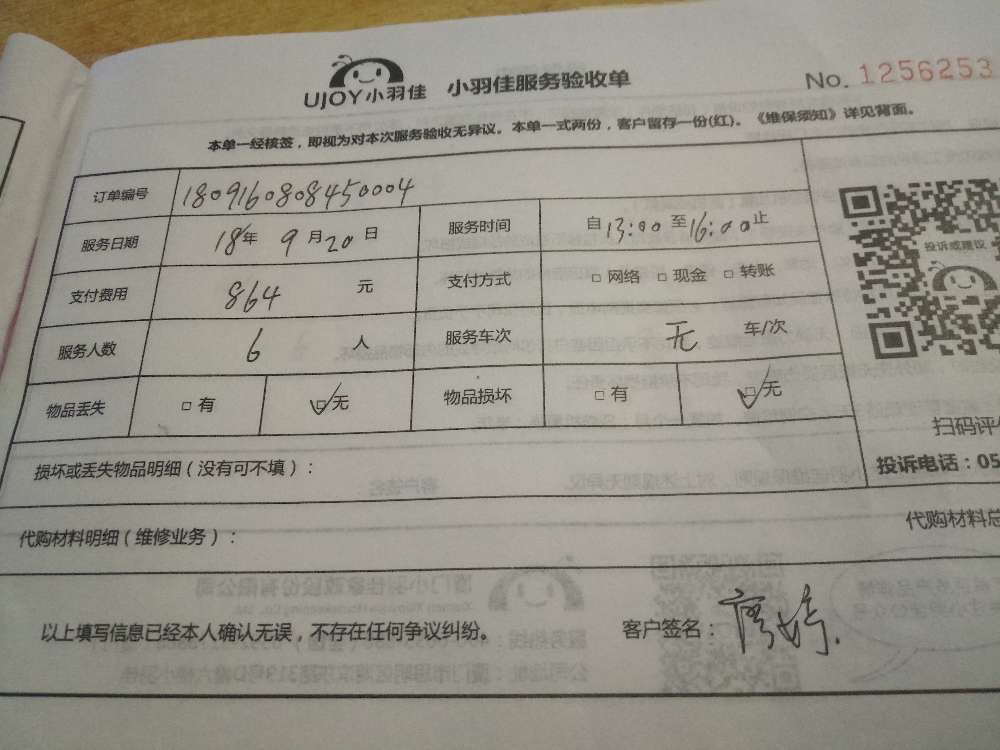 UJOY小羽佳 小羽佳服务验收单 No. 1256253
本单一经核签，即视为对本次服务验收无异议。本单一式两份，客户留存一份(红)。《维保须知》详见背面。
订单编号 1809160808450004
服务日期 18年 9月20日 服务时间 自13:00至16:00止
投诉或建议
支付费用 864 元 支付方式 □ 网络 □ 现金 □ 转账
服务人数 6 人 服务车次 无 车/次
物品丢失 □ 有 ☑ 无 物品损坏 □ 有 ☑ 无
扫码评
损坏或丢失物品明细（没有可不填）：
投诉电话：05
代购材料明细（维修业务）：
代购材料总
以上填写信息已经本人确认无误，不存在任何争议纠纷。 客户签名：